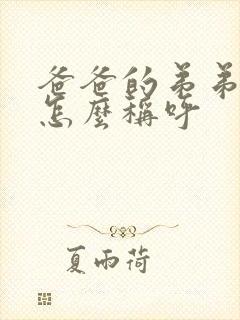 爸爸的弟弟
怎麼稱呼
夏雨荷